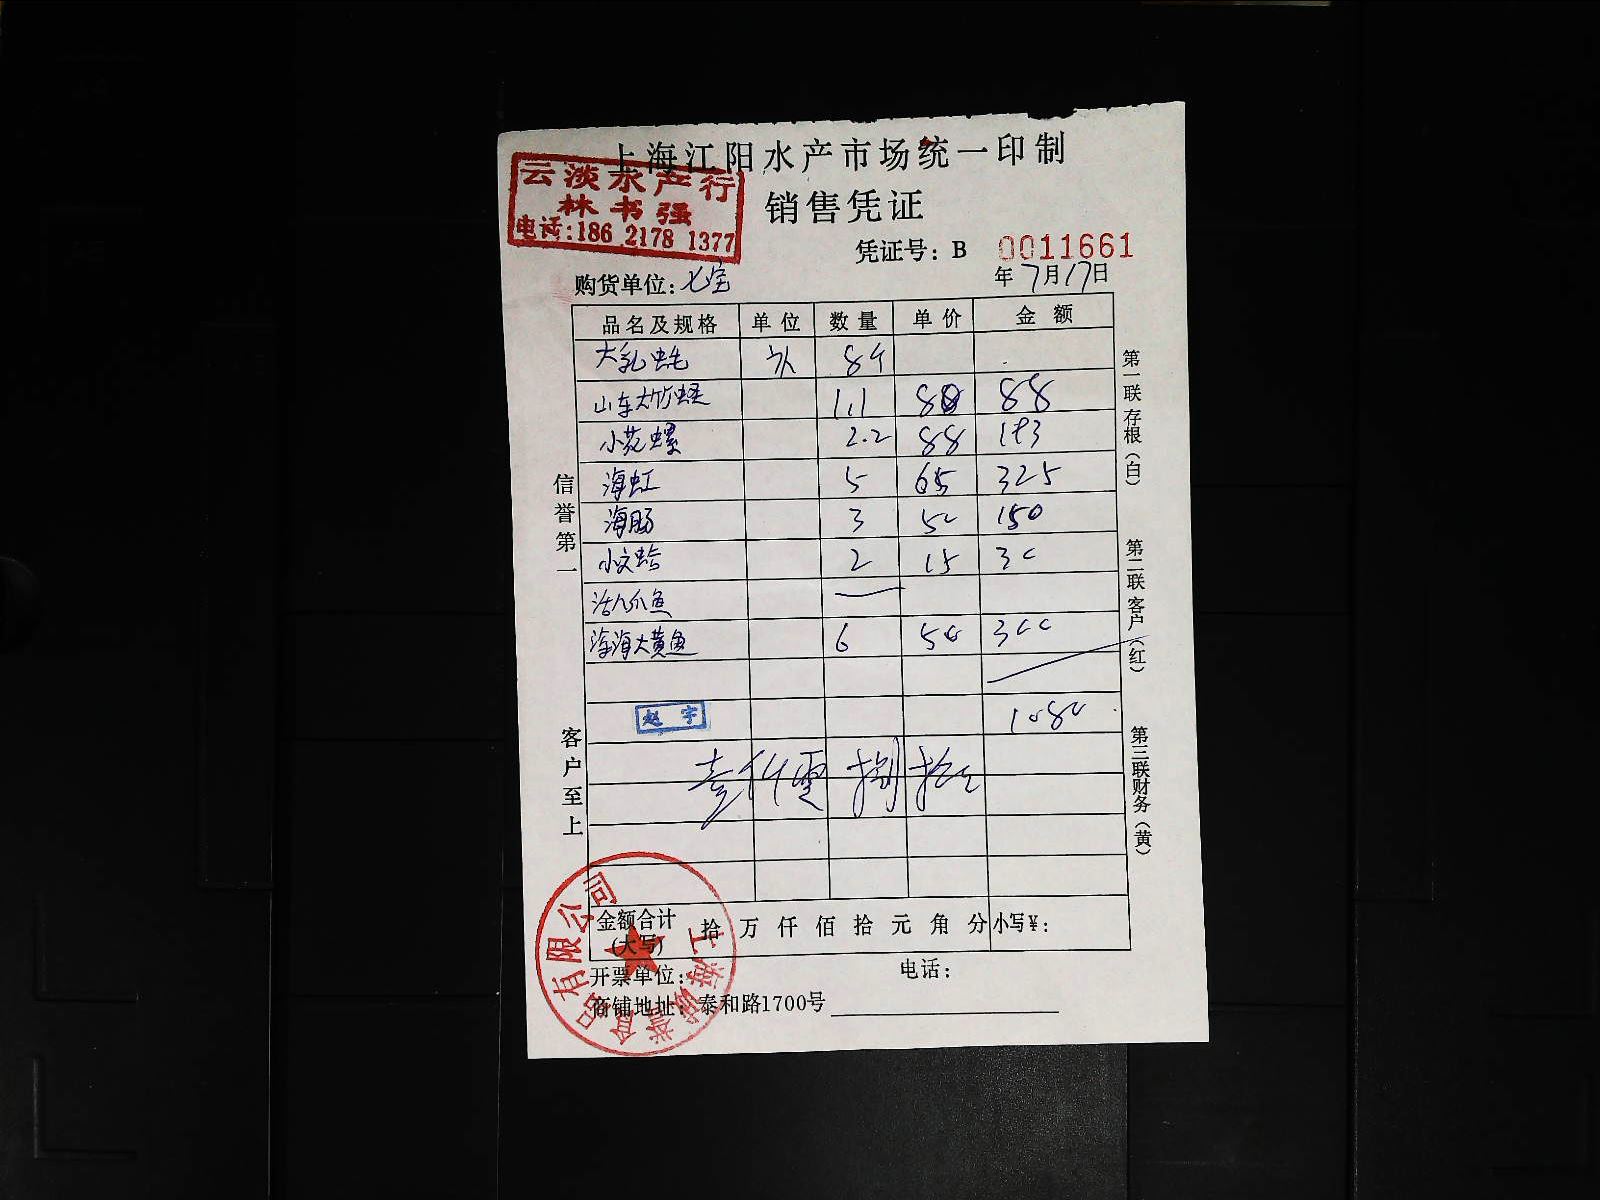 上海江阳水产市场统一印制
云淡水产行
林书强
电话:186 2178 1377
销售凭证
凭证号: B 0011661
购货单位: 七宝
年 7月17日
品名及规格 单位 数量 单价 金额
大乳蚝 84
山东大竹蛏 1.1 80 88
小花螺 2.2 88 193
海虹 5 65 325
海肠 3 50 150
小文蛤 2 15 30
活八爪鱼 —
海大黄鱼 6 50 300
1080
赵宇
壹仟零捌拾元
金额合计(大写) 拾 万 仟 佰 拾 元 角 分 小写¥:
开票单位: 电话:
商铺地址: 泰和路1700号
信誉第一
客户至上
第一联存根(白)
第二联客户(红)
第三联财务(黄)
上海 誉食品有限公司